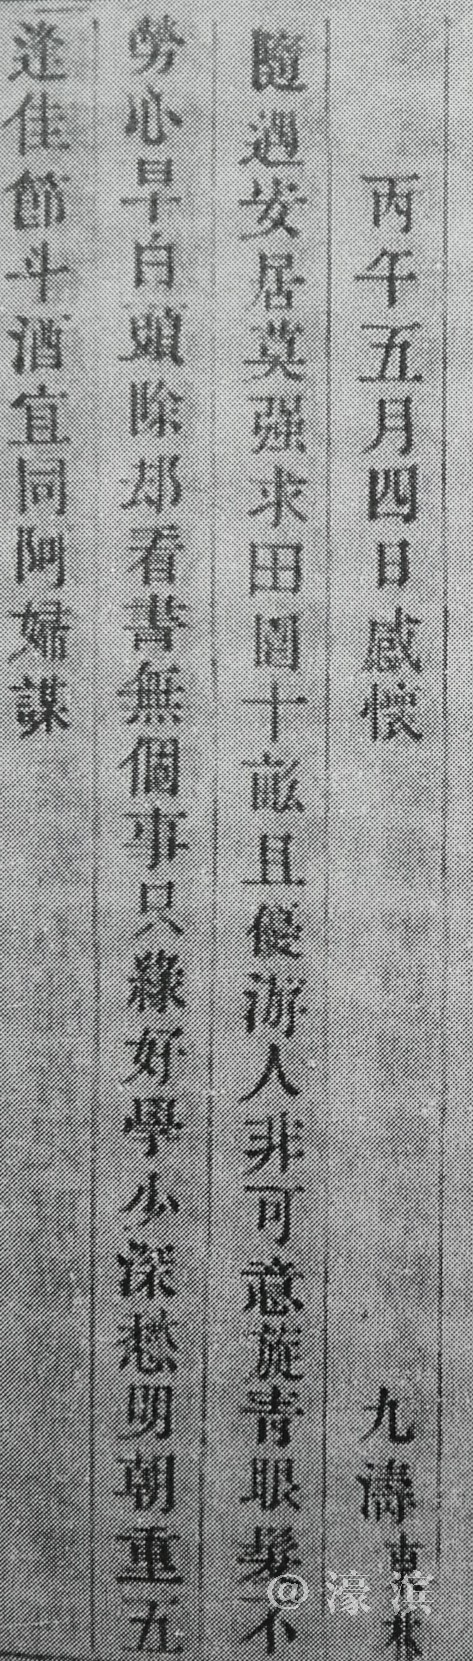 丙午五月四日感懷 九濤
隨遇安居莫强求田園十畝且優游人非可意旋青眼髮不
勞心早白頭除却看書無個事只緣好學少深愁明朝重五
逢佳節斗酒宜同阿婦謀
@濠滨